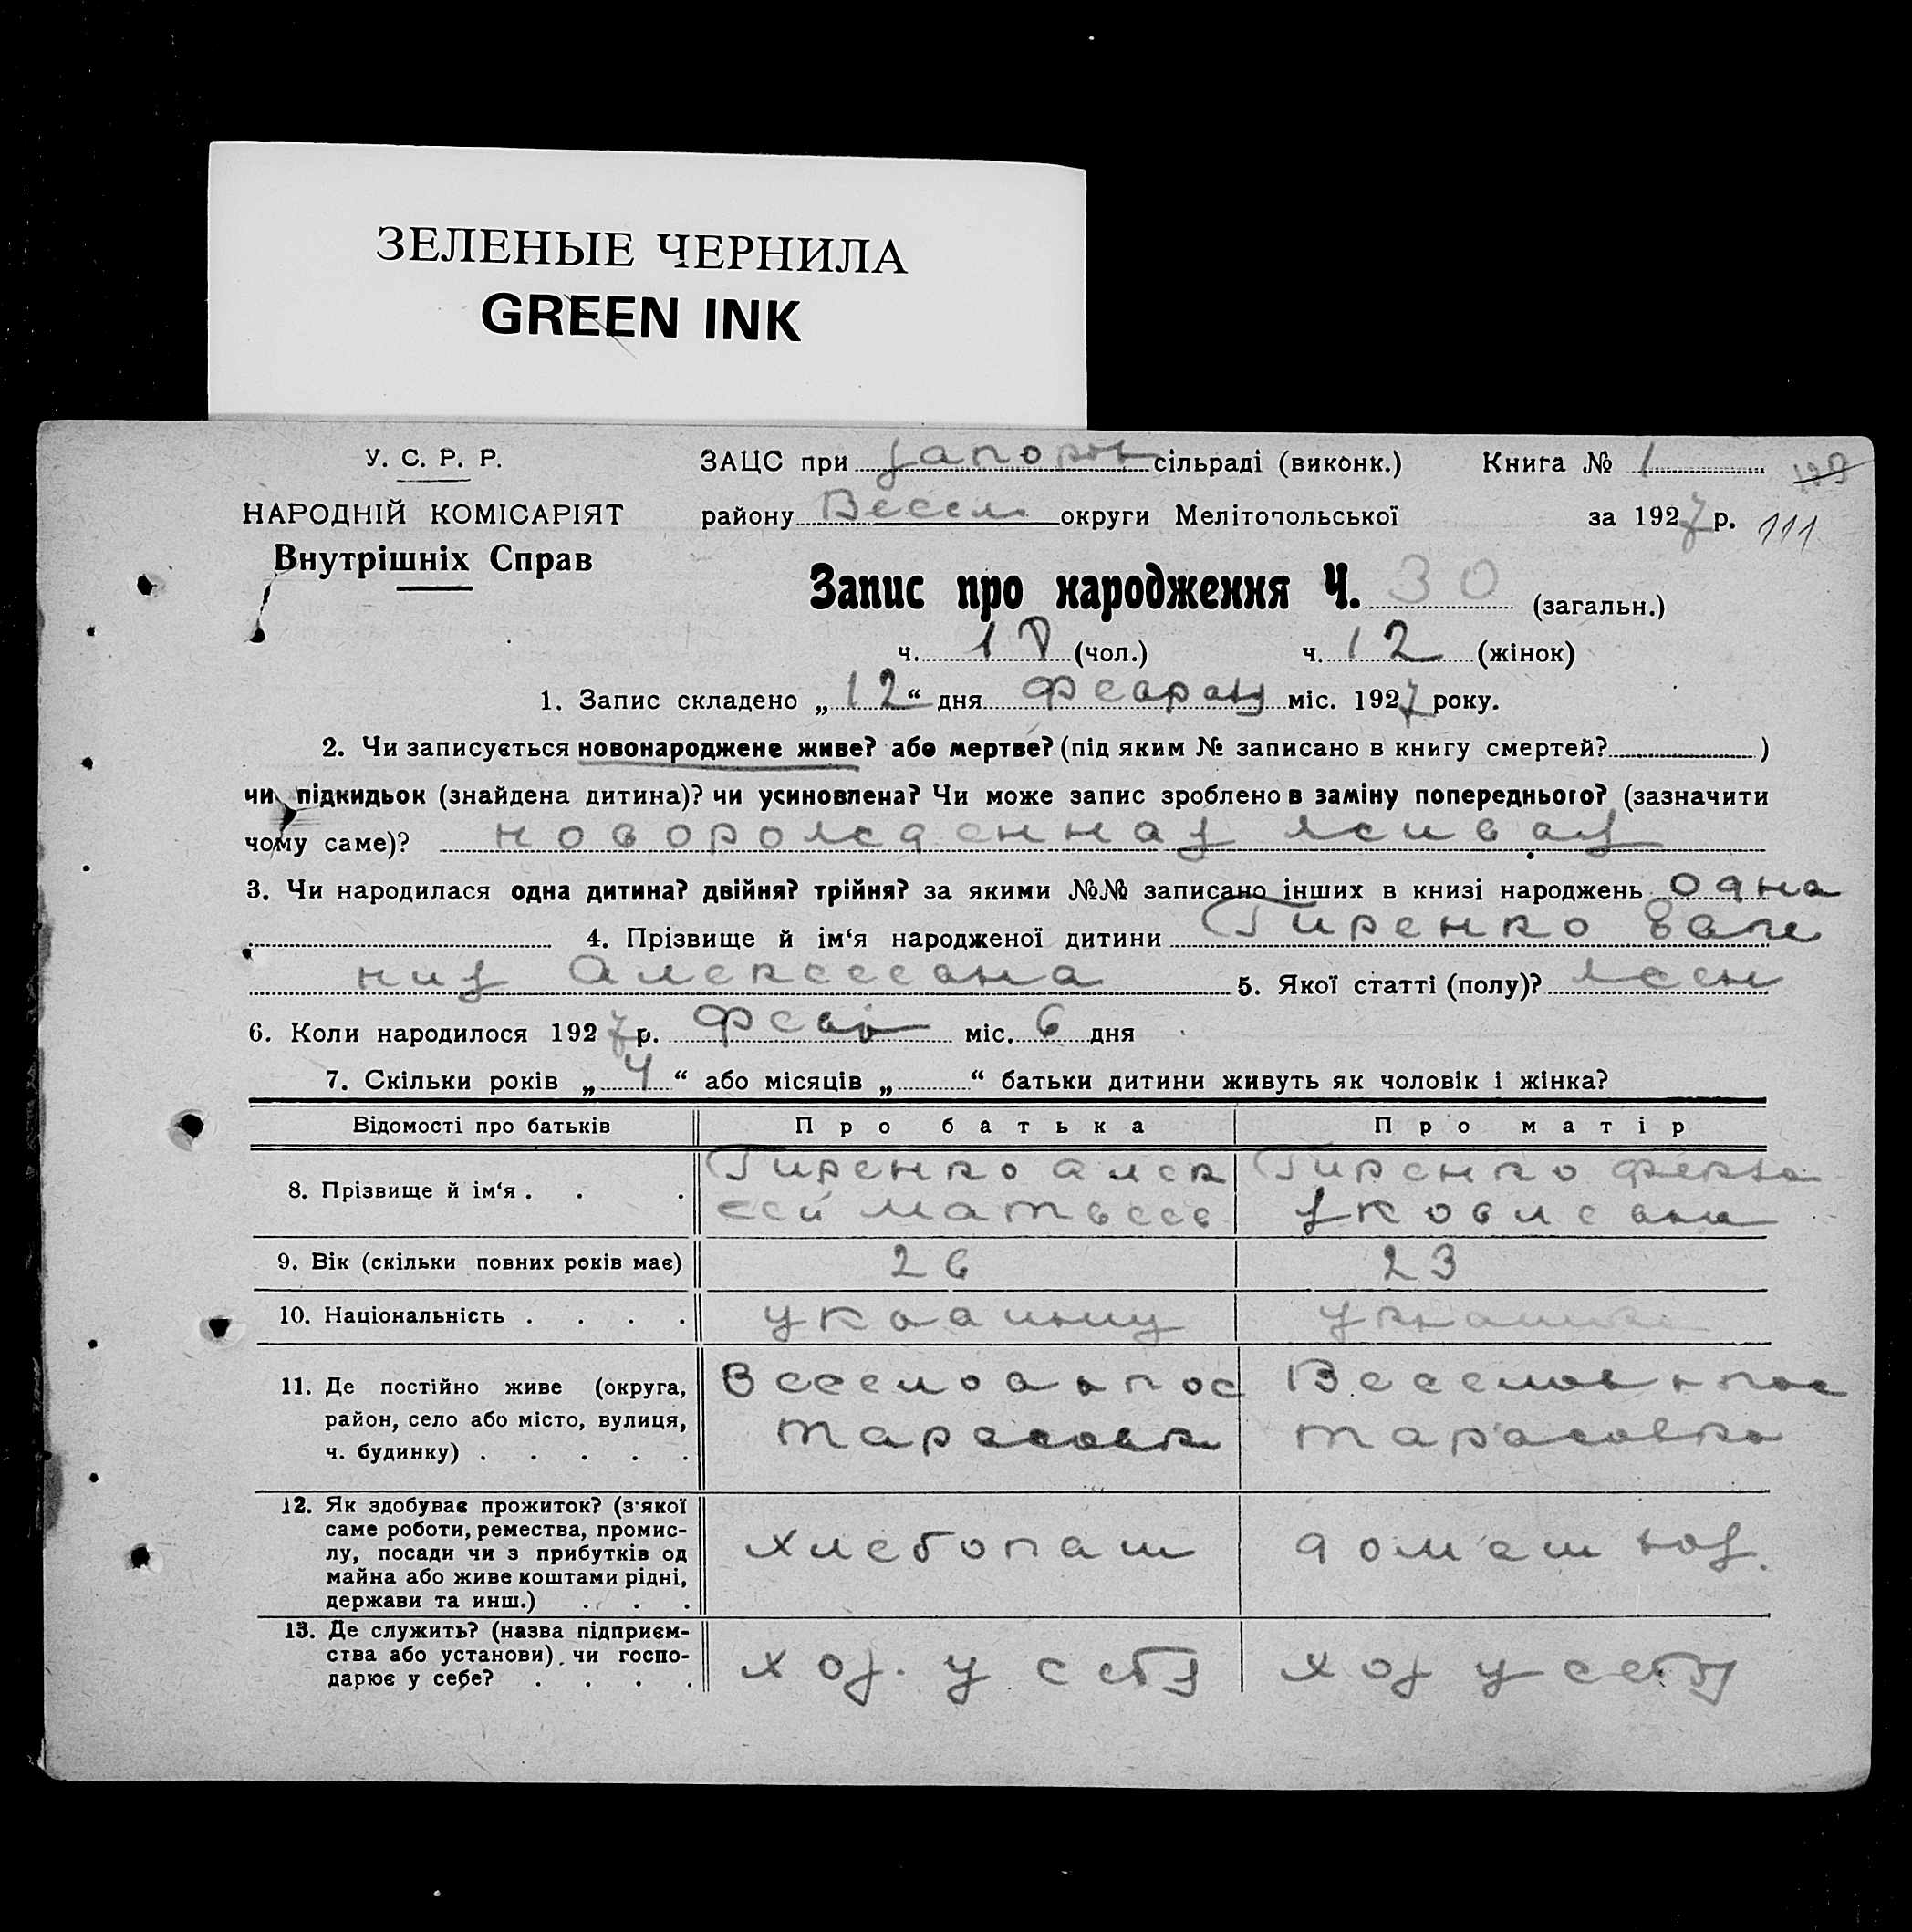 ЗЕЛЕНЫЕ ЧЕРНИЛА
GREEN INK
У. С. Р. Р.
НАРОДНІЙ КОМІСАРІЯТ
Внутрішніх Справ
ЗАЦС при запорож сільраді (виконк.) Книга № 1
району Весел округи Мелітопольської за 1927 р. 111
Запис про народження Ч. 30 (загальн.)
ч. 18 (чол.) ч. 12 (жінок)
1. Запис складено „12“ дня февраля міс. 1927 року.
2. Чи записується новонароджене живе? або мертве? (під яким № записано в книгу смертей? )
чи підкидьок (знайдена дитина)? чи усиновлена? Чи може запис зроблено в заміну попереднього? (зазначити
чому саме)? новорожденная живая
3. Чи народилася одна дитина? двійня? трійня? за якими №№ записано інших в книзі народжень одна
4. Прізвище й ім‘я народженої дитини Гиренко Евге
ния Алексеевна 5. Якої статті (полу)? жен
6. Коли народилося 1927 р. Фев міс. 6 дня
7. Скільки років „4“ або місяців „ “ батьки дитини живуть як чоловік і жінка?
Відомості про батьків Про батька Про матір
8. Прізвище й ім‘я . . . Гиренко Алек Гиренко
сей Матвеев Яковлевна
9. Вік (скільки повних років має) 26 23
10. Національність . . . . украинец украинка
11. Де постійно живе (округа, район, село або місто, вулиця, ч. будинку) . . . . .
Тарасовк Тарасовка
12. Як здобуває прожиток? (з‘якої саме роботи, ремества, промис-
лу, посади чи з прибутків од
майна або живе коштами рідні,
держави та инш.) . . . хлебопаш домаш хоз.
13. Де служить? (назва підприєм-
ства або установи) чи госпо-
дарює у себе? . . . . хоз. у себя хоз у себя